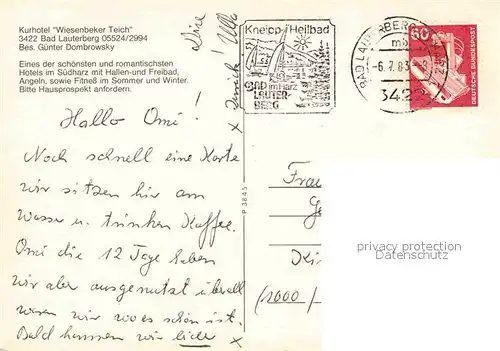 Kurhotel "Wiesenbeker Teich"
3422 Bad Lauterberg 05524/2994
Bes. Günter Dombrowsky
Eines der schönsten und romantischsten
Hotels im Südharz mit Hallen-und Freibad,
Angeln, sowie Fitneß im Sommer und Winter.
Bitte Hausprospekt anfordern.
Kneipp Heilbad
BAD im Harz
LAUTER-
BERG
BAD LAUTERBERG
3422
60
DEUTSCHE BUNDESPOST
Hallo Omi!
Noch schnell eine Karte
wir sitzen hier am
Wasser u. trinken Kaffee.
Omi die 12 Tage haben
wir aber ausgenutzt überall
waren wir wo es schön ist.
Bald kommen wir
P 3845
Frau
(1000/
privacy protection
Datenschutz